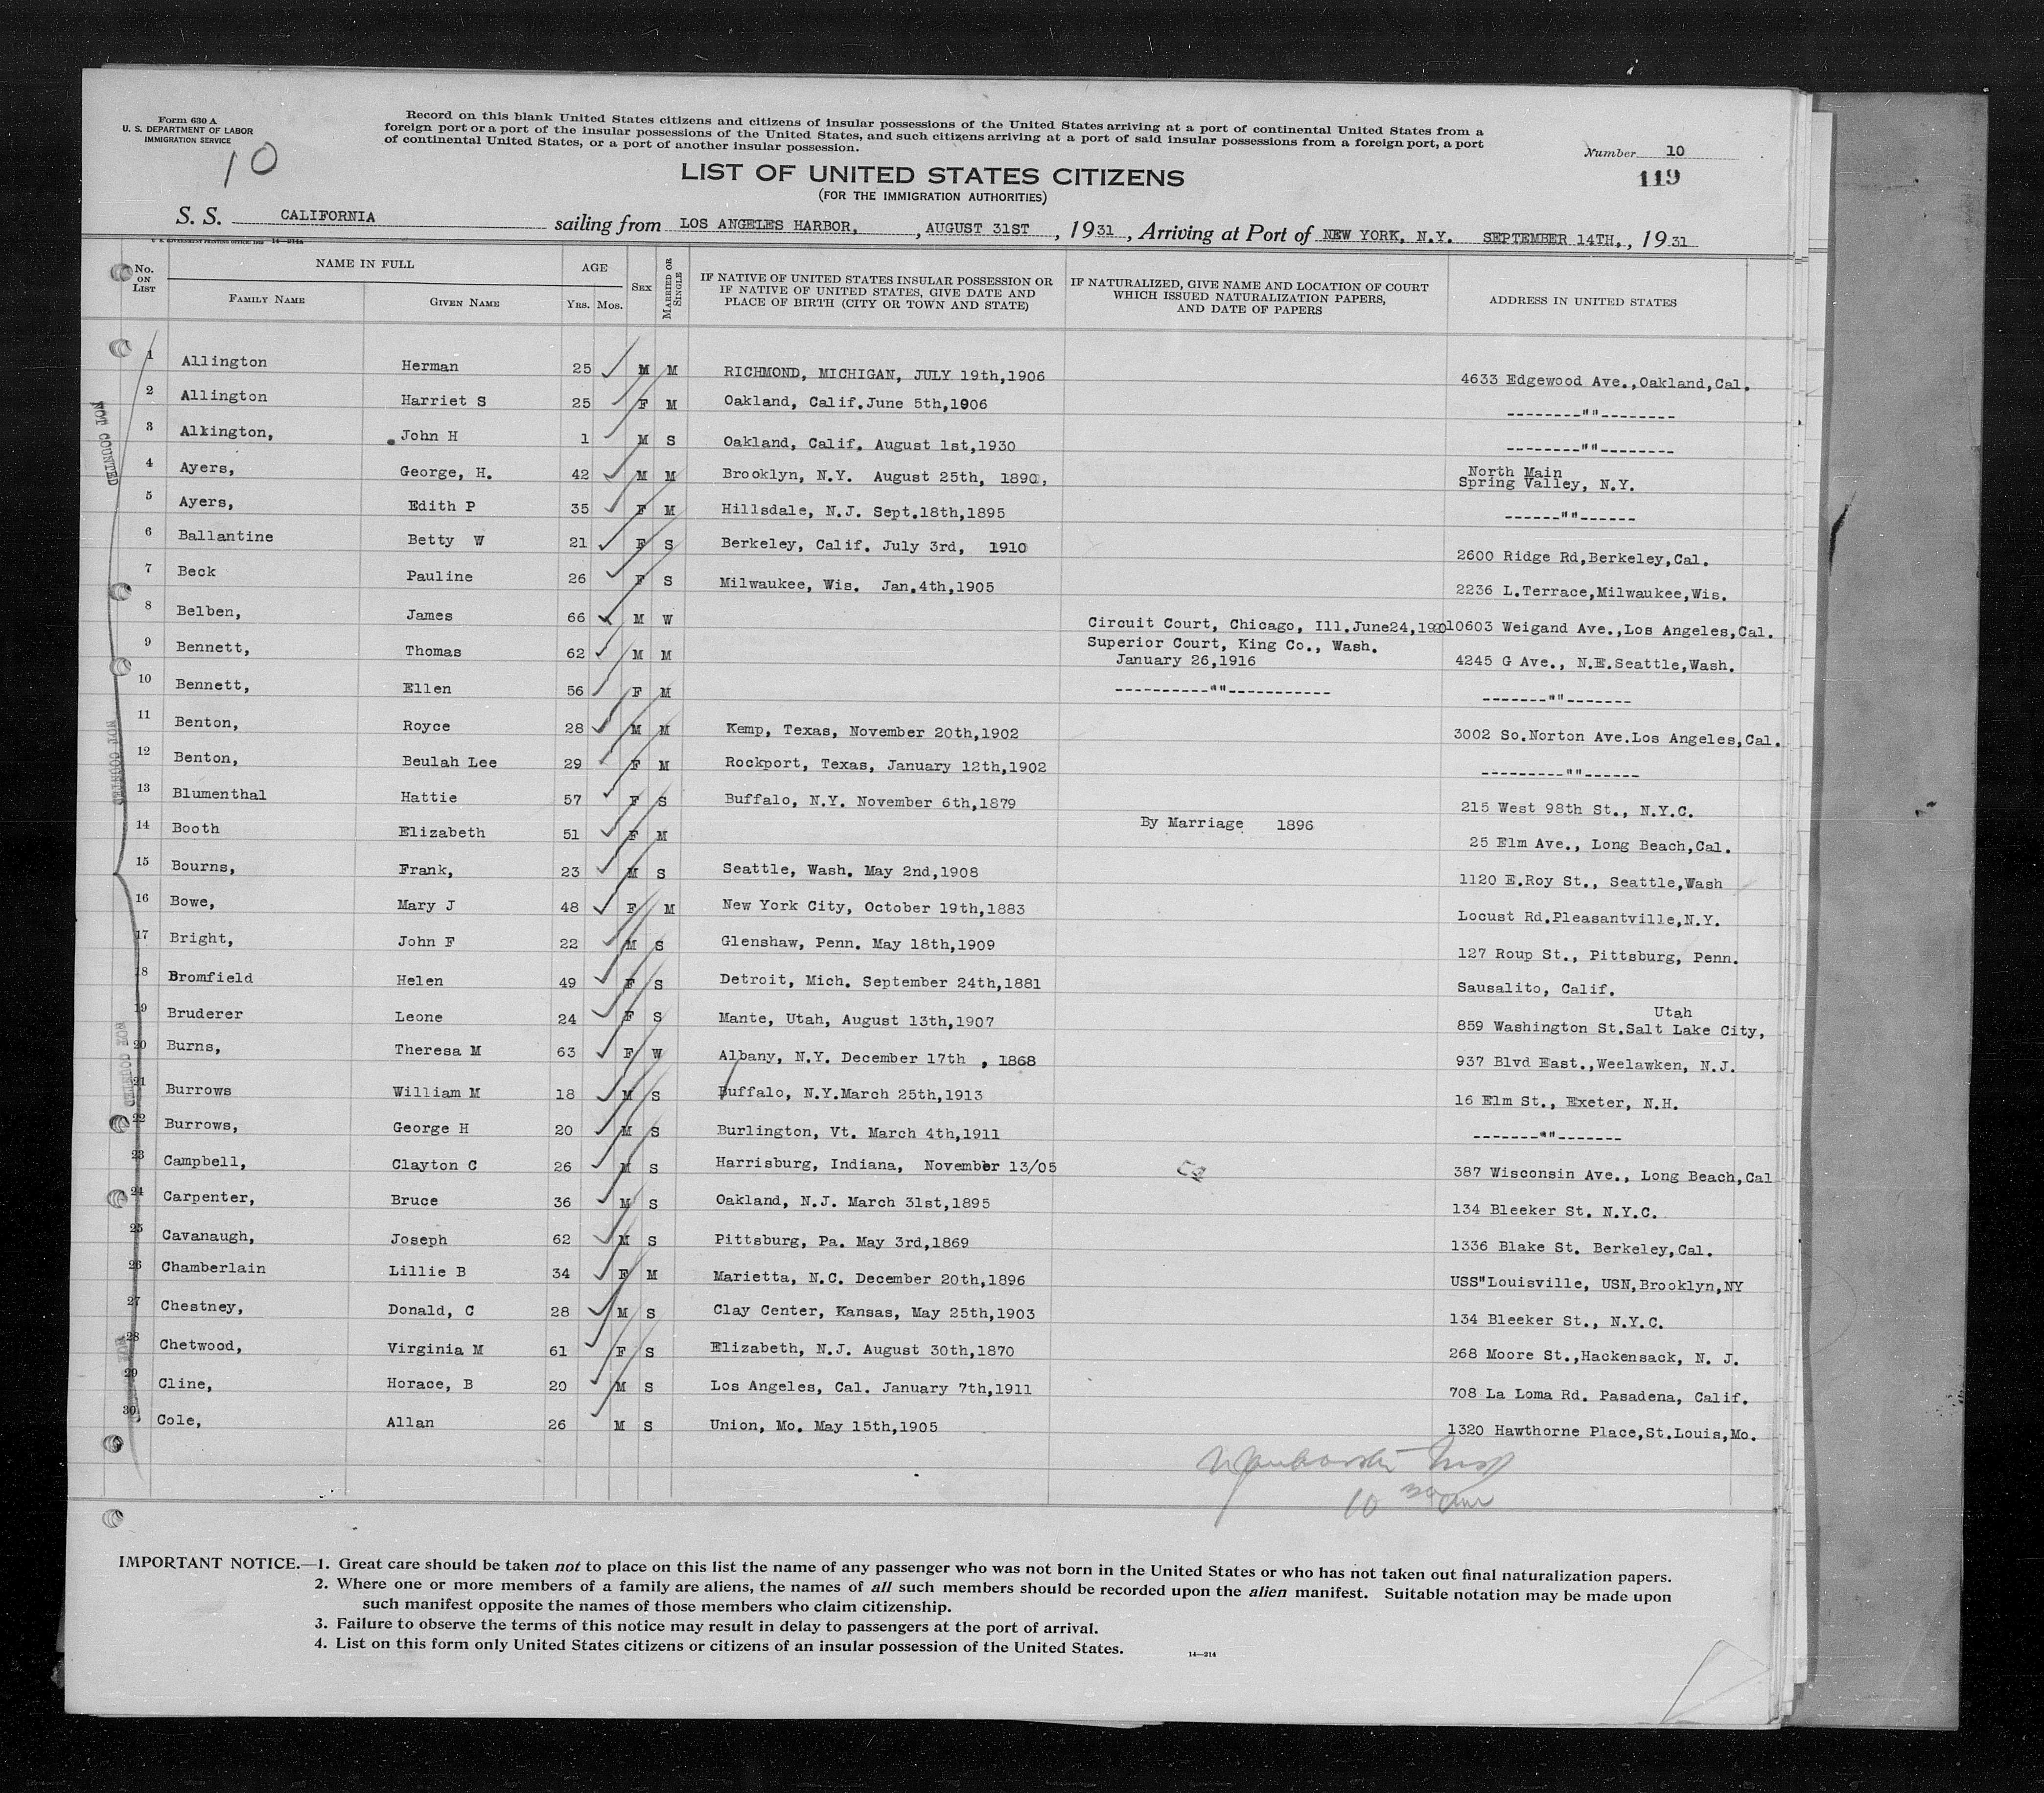 Form 630 A
U. S. DEPARTMENT OF LABOR
IMMIGRATION SERVICE
10
Record on this blank United States citizens and citizens of insular possessions of the United States arriving at a port of continental United States from a
foreign port or a port of the insular possessions of the United States, and such citizens arriving at a port of said insular possessions from a foreign port, a port
of continental United States, or a port of another insular possession.
Number 10
119
LIST OF UNITED STATES CITIZENS
(FOR THE IMMIGRATION AUTHORITIES)
S. S. CALIFORNIA sailing from LOS ANGELES HARBOR, , AUGUST 31ST , 1931 , Arriving at Port of NEW YORK, N.Y. SEPTEMBER 14TH, , 1931
14—214a
No. on List NAME IN FULL AGE Sex Married or Single IF NATIVE OF UNITED STATES INSULAR POSSESSION OR IF NATIVE OF UNITED STATES, GIVE DATE AND PLACE OF BIRTH (CITY OR TOWN AND STATE) IF NATURALIZED, GIVE NAME AND LOCATION OF COURT WHICH ISSUED NATURALIZATION PAPERS, AND DATE OF PAPERS ADDRESS IN UNITED STATES
Family Name Given Name Yrs. Mos.
1 Allington Herman 25 M M RICHMOND, MICHIGAN, JULY 19th,1906 4633 Edgewood Ave.,Oakland,Cal.
2 Allington Harriet S 25 F M Oakland, Calif.June 5th,1906 --------""--------
3 Alkington, John H 1 M S Oakland, Calif. August 1st,1930 --------""--------
4 Ayers, George, H. 42 M M Brooklyn, N.Y. August 25th, 1890, North Main
Spring Valley, N.Y.
5 Ayers, Edith P 35 F M Hillsdale, N.J. Sept.18th,1895 ------""------
6 Ballantine Betty W 21 F S Berkeley, Calif. July 3rd, 1910 2600 Ridge Rd,Berkeley,Cal.
7 Beck Pauline 26 F S Milwaukee, Wis. Jan.4th,1905 2236 L.Terrace,Milwaukee,Wis.
8 Belben, James 66 M W Circuit Court, Chicago, Ill.June24, 10603 Weigand Ave.,Los Angeles,Cal.
9 Bennett, Thomas 62 M M Superior Court, King Co., Wash.
January 26,1916 4245 G Ave., N.E.Seattle,Wash.
10 Bennett, Ellen 56 F M ----------""----------- -------""-------
11 Benton, Royce 28 M M Kemp, Texas, November 20th,1902 3002 So.Norton Ave.Los Angeles,Cal.
12 Benton, Beulah Lee 29 F M Rockport, Texas, January 12th,1902 ---------""------
13 Blumenthal Hattie 57 F S Buffalo, N.Y. November 6th,1879 215 West 98th St., N.Y.C.
14 Booth Elizabeth 51 F M By Marriage 1896 25 Elm Ave., Long Beach,Cal.
15 Bourns, Frank, 23 M S Seattle, Wash. May 2nd,1908 1120 E.Roy St., Seattle,Wash
16 Bowe, Mary J 48 F M New York City, October 19th,1883 Locust Rd.Pleasantville,N.Y.
17 Bright, John F 22 M S Glenshaw, Penn. May 18th,1909 127 Roup St., Pittsburg, Penn.
18 Bromfield Helen 49 F S Detroit, Mich. September 24th,1881 Sausalito, Calif.
19 Bruderer Leone 24 F S Mante, Utah, August 13th,1907 Utah
859 Washington St.Salt Lake City,
20 Burns, Theresa M 63 F W Albany, N.Y. December 17th , 1868 937 Blvd East.,Weelawken, N.J.
21 Burrows William M 18 M S Buffalo, N.Y.March 25th,1913 16 Elm St., Exeter, N.H.
22 Burrows, George H 20 M S Burlington, Vt. March 4th,1911 -------""-------
23 Campbell, Clayton C 26 M S Harrisburg, Indiana, November 13/05 387 Wisconsin Ave., Long Beach,Cal
24 Carpenter, Bruce 36 M S Oakland, N.J. March 31st,1895 134 Bleeker St. N.Y.C.
25 Cavanaugh, Joseph 62 M S Pittsburg, Pa. May 3rd,1869 1336 Blake St. Berkeley,Cal.
26 Chamberlain Lillie B 34 F M Marietta, N.C. December 20th,1896 USS"Louisville, USN,Brooklyn,NY
27 Chestney, Donald, C 28 M S Clay Center, Kansas, May 25th,1903 134 Bleeker St., N.Y.C.
28 Chetwood, Virginia M 61 F S Elizabeth, N.J. August 30th,1870 268 Moore St.,Hackensack, N. J.
29 Cline, Horace, B 20 M S Los Angeles, Cal. January 7th,1911 708 La Loma Rd. Pasadena, Calif.
30 Cole, Allan 26 M S Union, Mo. May 15th,1905 1320 Hawthorne Place,St.Louis,Mo.
NOT COUNTED
NOT COUNTED
NOT COUNTED
NOT
10 30 am
IMPORTANT NOTICE.—1. Great care should be taken not to place on this list the name of any passenger who was not born in the United States or who has not taken out final naturalization papers.
2. Where one or more members of a family are aliens, the names of all such members should be recorded upon the alien manifest. Suitable notation may be made upon
such manifest opposite the names of those members who claim citizenship.
3. Failure to observe the terms of this notice may result in delay to passengers at the port of arrival.
4. List on this form only United States citizens or citizens of an insular possession of the United States.
14—214